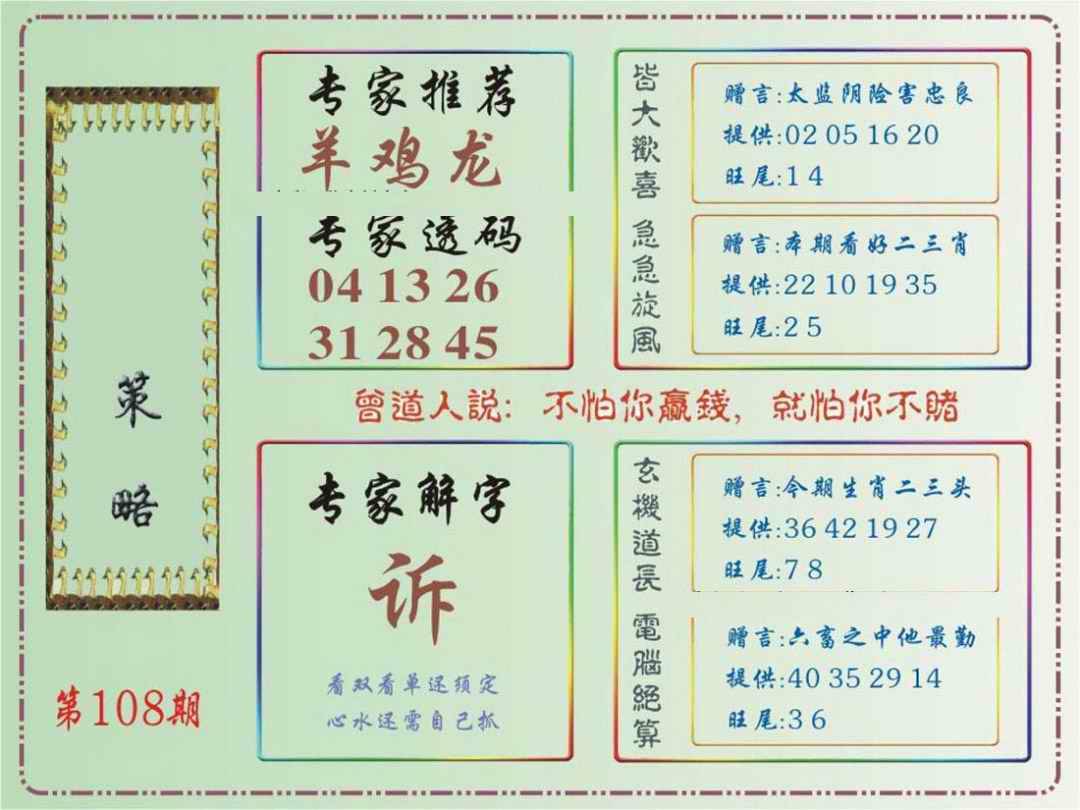 策略
第108期
专家推荐
羊鸡龙
专家透码
04 13 26
31 28 45
皆大歡喜
赠言:太监阴险害忠良
提供:02 05 16 20
旺尾:1 4
急急旋風
赠言:本期看好二三肖
提供:22 10 19 35
旺尾:2 5
曾道人説: 不怕你贏錢, 就怕你不賭
专家解字
诉
看双看单还须定
心水还需自己抓
玄機道長
赠言:今期生肖二三头
提供:36 42 19 27
旺尾:7 8
電腦絕算
赠言:六畜之中他最勤
提供:40 35 29 14
旺尾:3 6